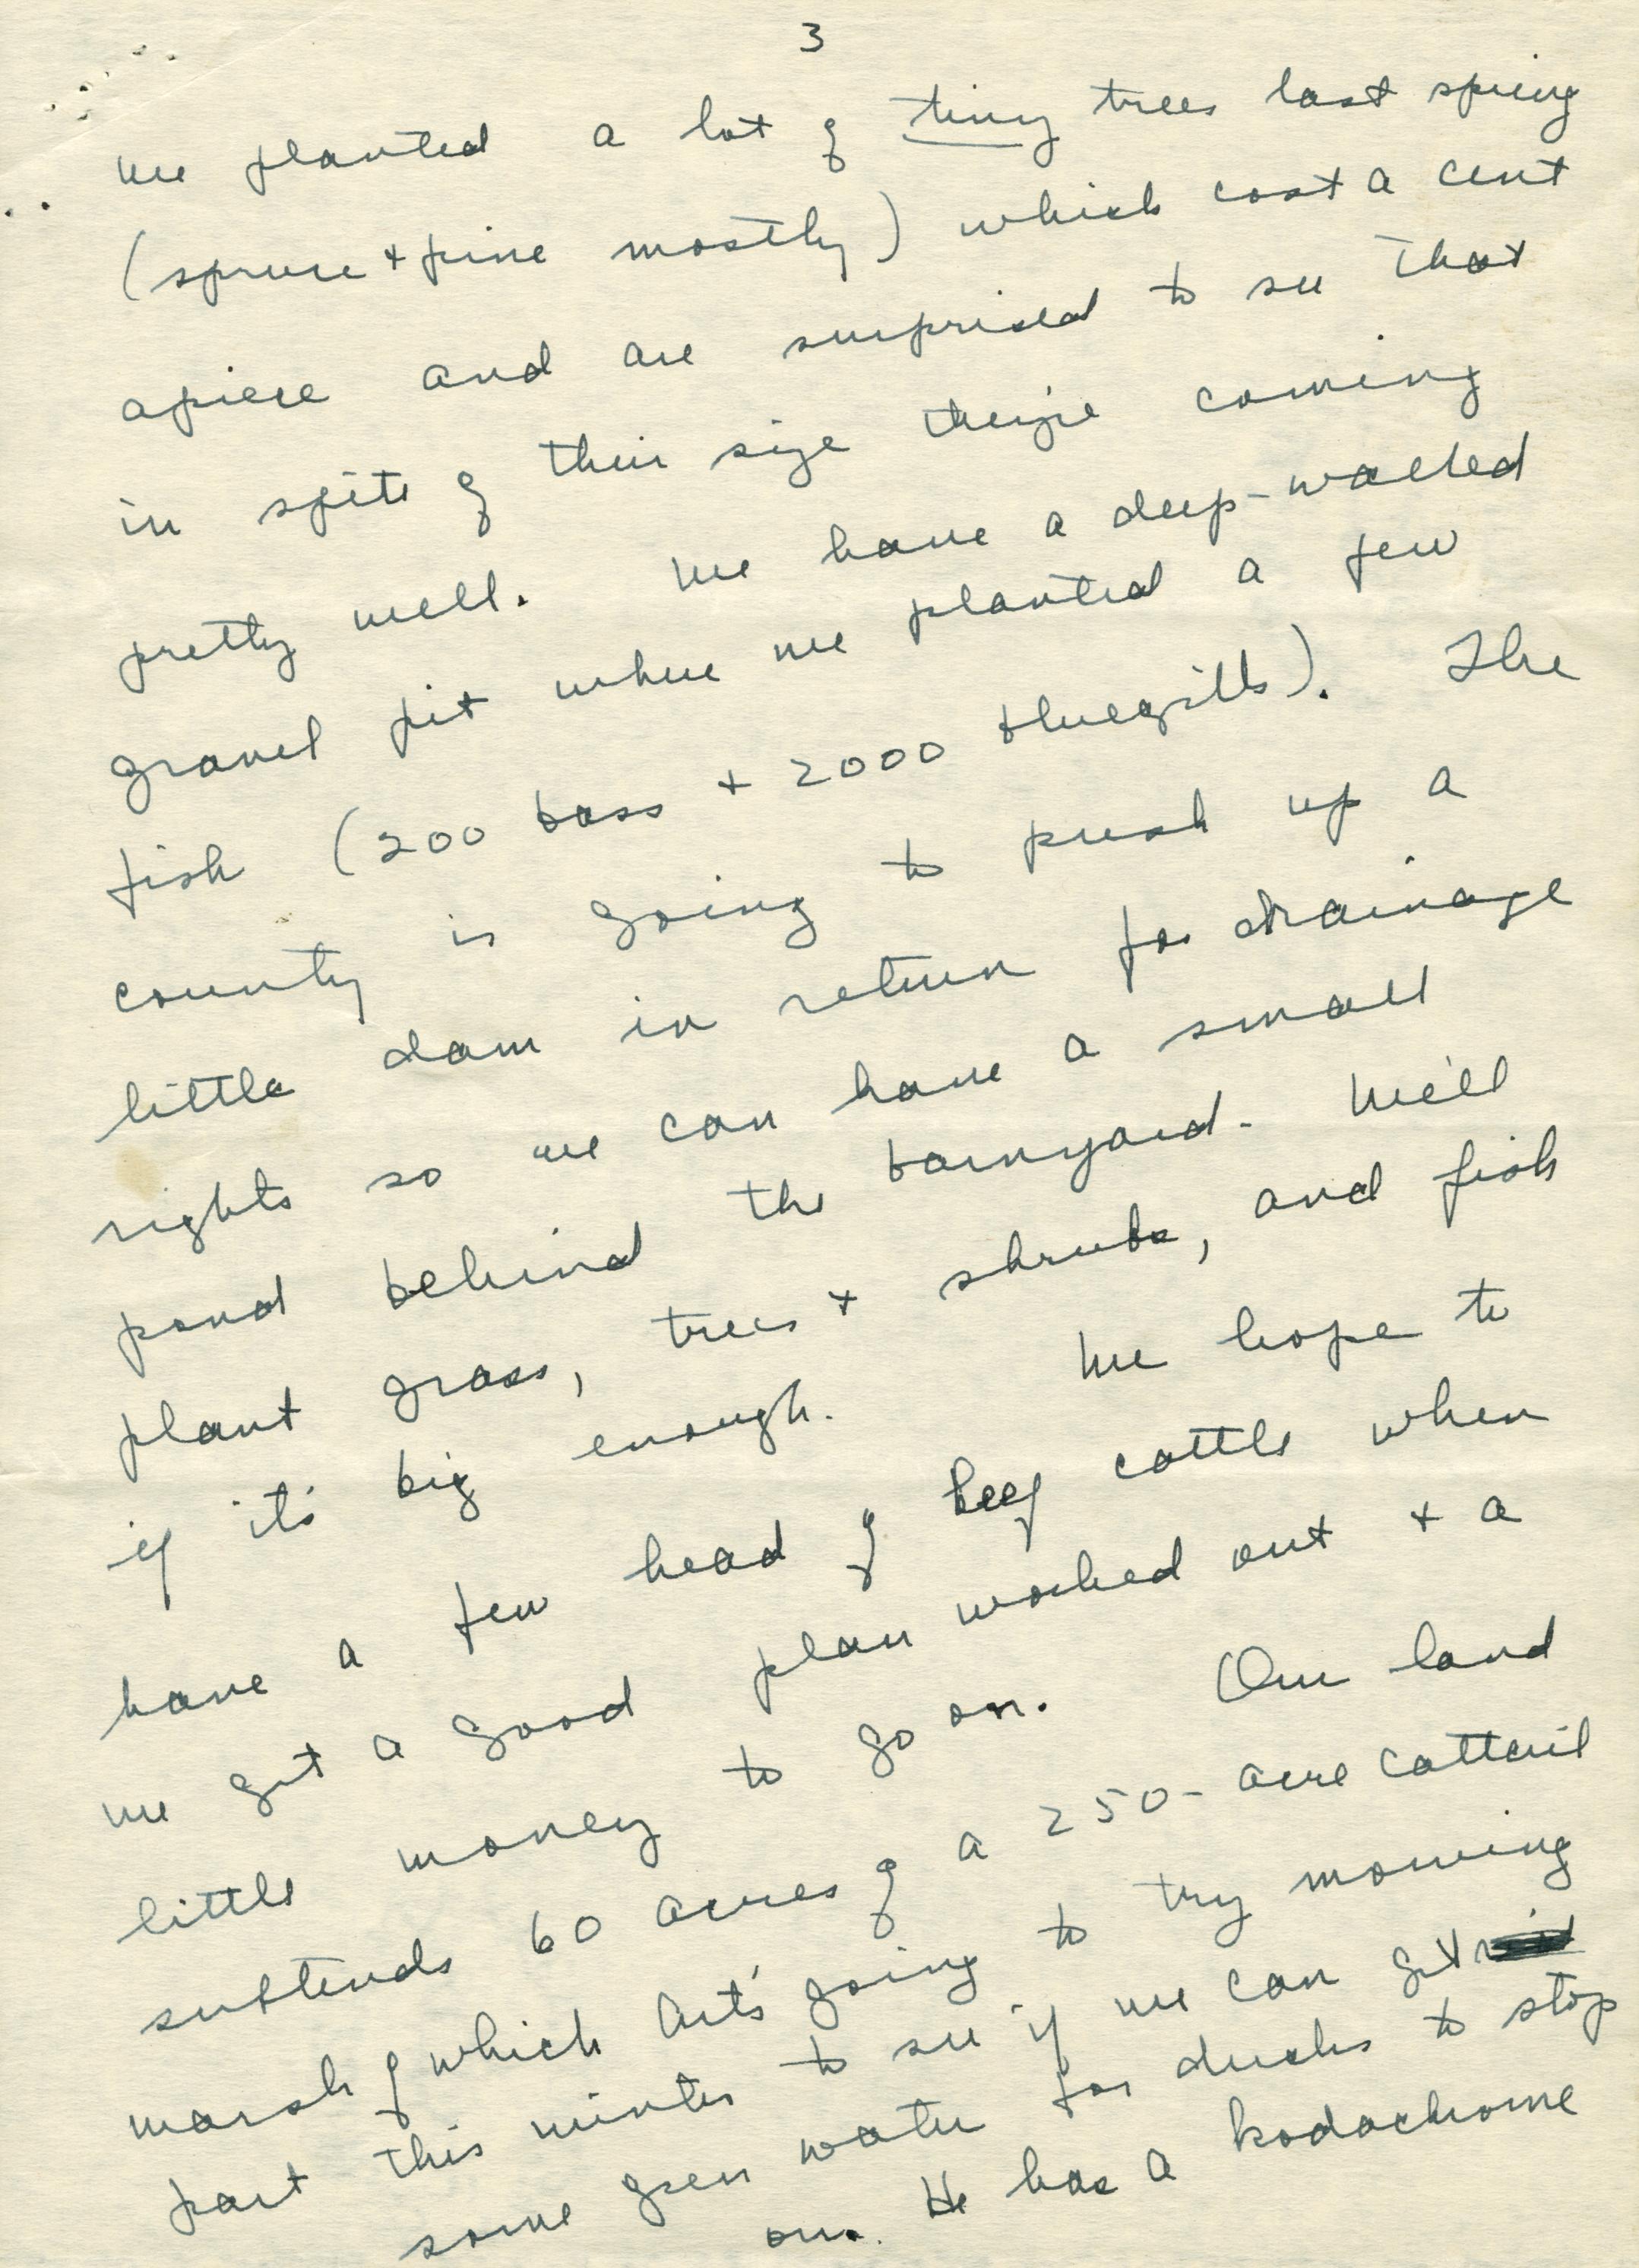 3
We planted a lot of tiny trees last spring
(spruce + pine mostly) which cost a cent
apiece and are surprised to see that
in spite of their size they're coming
pretty well. We have a deep-walled
gravel pit where we planted a few
fish (200 bass + 2000 bluegills). The
county is going to push up a
little dam in return for drainage
rights so we can have a small
pond behind the barnyard. We'll
plant grass, trees + shrubs, and fish
if it's big enough. We hope to
have a few head of beef cattle when
we get a good plan worked out + a
little money to go on. Our land
subtends 60 acres of a 250-acre cattail
marsh of which Art's going to try mowing
part this winter to see if we can get
some open water for ducks to stop
on. He has a kodachrome